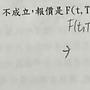 不成立,報價是 F(t,T
F(t,T
→